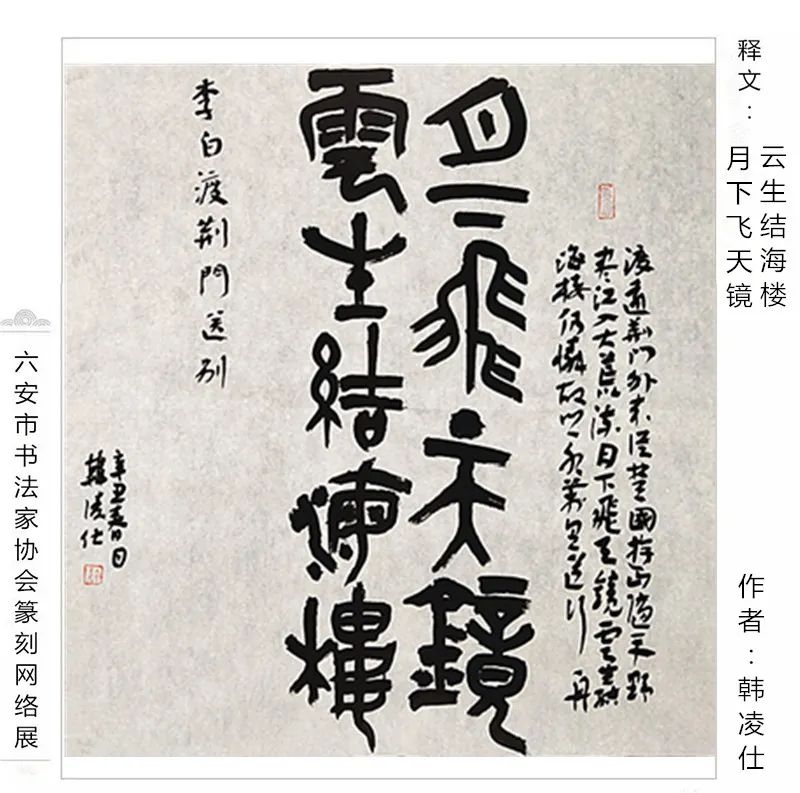 释文：
月下飞天镜
云生结海楼
作者：韩凌仕
渡遠荆门外来從楚國游山随平野
尽江入大荒流月下飛天鏡雲生結
海楼仍憐故乡水萬里送行舟
月下飛天鏡
雲生結海樓
李白渡荆門送别
辛丑春日
韓凌仕
六安市书法家协会篆刻网络展